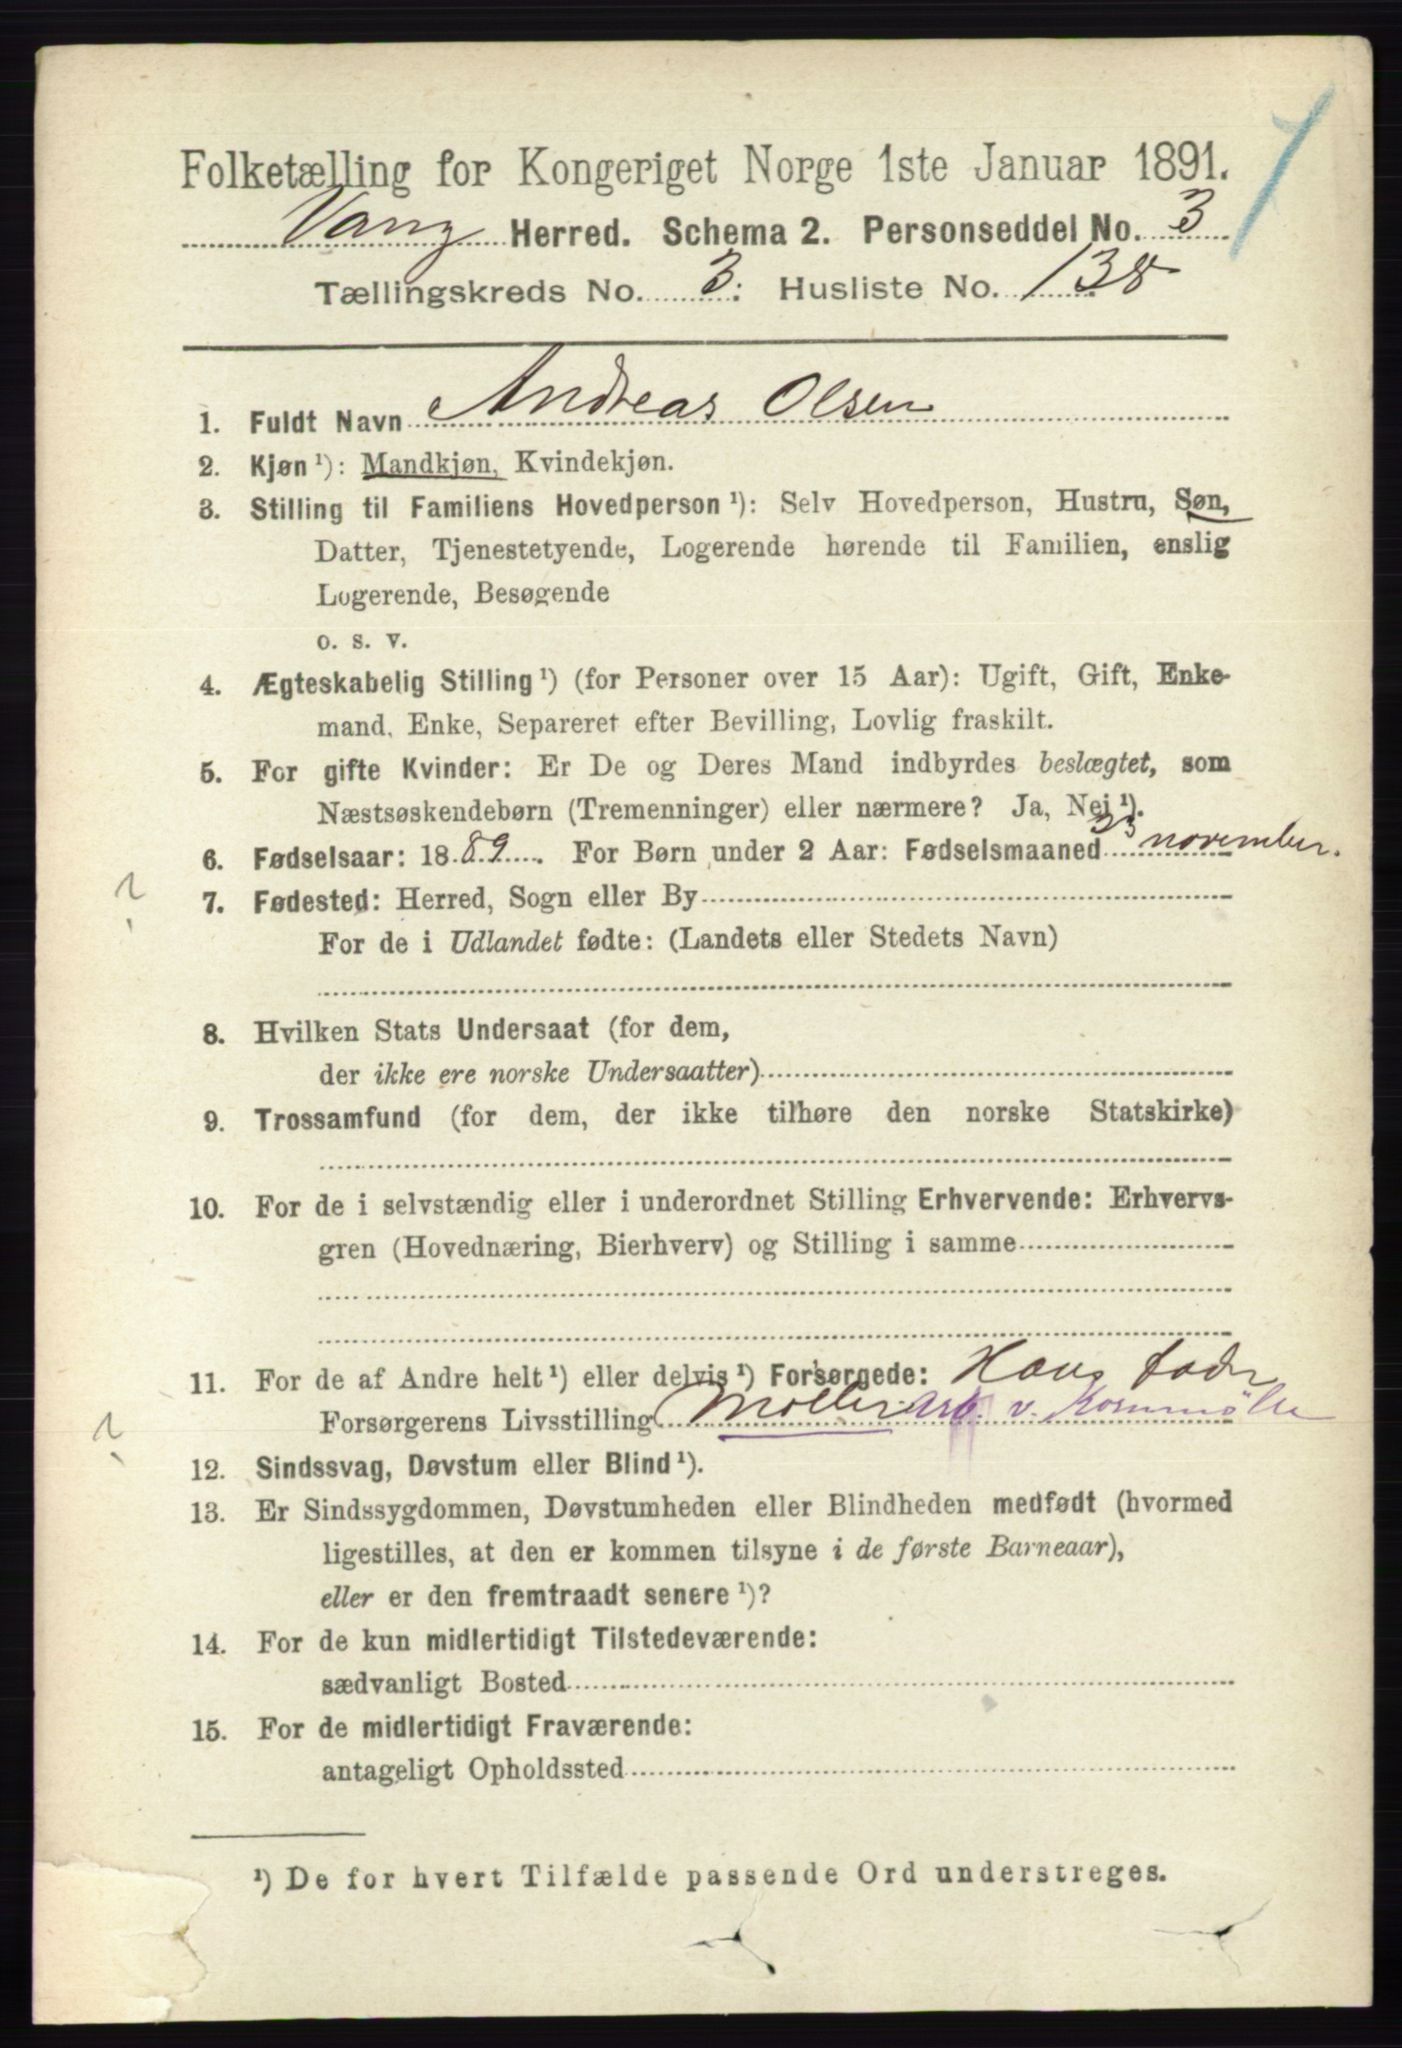 Folketælling for Kongeriget Norge 1ste Januar 1891.
Vang Herred. Schema 2. Personseddel No. 3
Tællingskreds No. 3. Husliste No. 138
1. Fuldt Navn Andreas Olsen
2. Kjøn ¹): Mandkjøn, Kvindekjøn.
3. Stilling til Familiens Hovedperson ¹): Selv Hovedperson, Hustru, Søn,
Datter, Tjenestetyende, Logerende hørende til Familien, enslig
Logerende, Besøgende
o. s. v.
4. Ægteskabelig Stilling ¹) (for Personer over 15 Aar): Ugift, Gift, Enke-
mand, Enke, Separeret efter Bevilling, Lovlig fraskilt.
5. For gifte Kvinder: Er De og Deres Mand indbyrdes beslægtet, som
Næstsøskendebørn (Tremenninger) eller nærmere? Ja, Nej ¹).
6. Fødselsaar: 1889. For Børn under 2 Aar: Fødselsmaaned november.
7. Fødested: Herred, Sogn eller By
?
For de i Udlandet fødte: (Landets eller Stedets Navn)
8. Hvilken Stats Undersaat (for dem,
der ikke ere norske Undersaatter)
9. Trossamfund (for dem, der ikke tilhøre den norske Statskirke)
10. For de i selvstændig eller i underordnet Stilling Erhvervende: Erhvervs-
gren (Hovednæring, Bierhverv) og Stilling i samme
11. For de af Andre helt ¹) eller delvis ¹) Forsørgede: Hans fader
Forsørgerens Livsstilling Møller arb. v. Kornmølle
?
12. Sindssvag, Døvstum eller Blind ¹).
13. Er Sindssygdommen, Døvstumheden eller Blindheden medfødt (hvormed
ligestilles, at den er kommen tilsyne i de første Barneaar),
eller er den fremtraadt senere ¹)?
14. For de kun midlertidigt Tilstedeværende:
sædvanligt Bosted
15. For de midlertidigt Fraværende:
antageligt Opholdssted
¹) De for hvert Tilfælde passende Ord understreges.